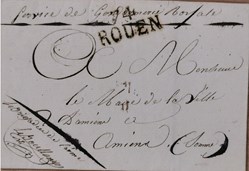 Service de Gendarmerie Royale
74
ROUEN
A Monsieur
le Maire de la Ville
D'amiens à
Amiens (Somme)